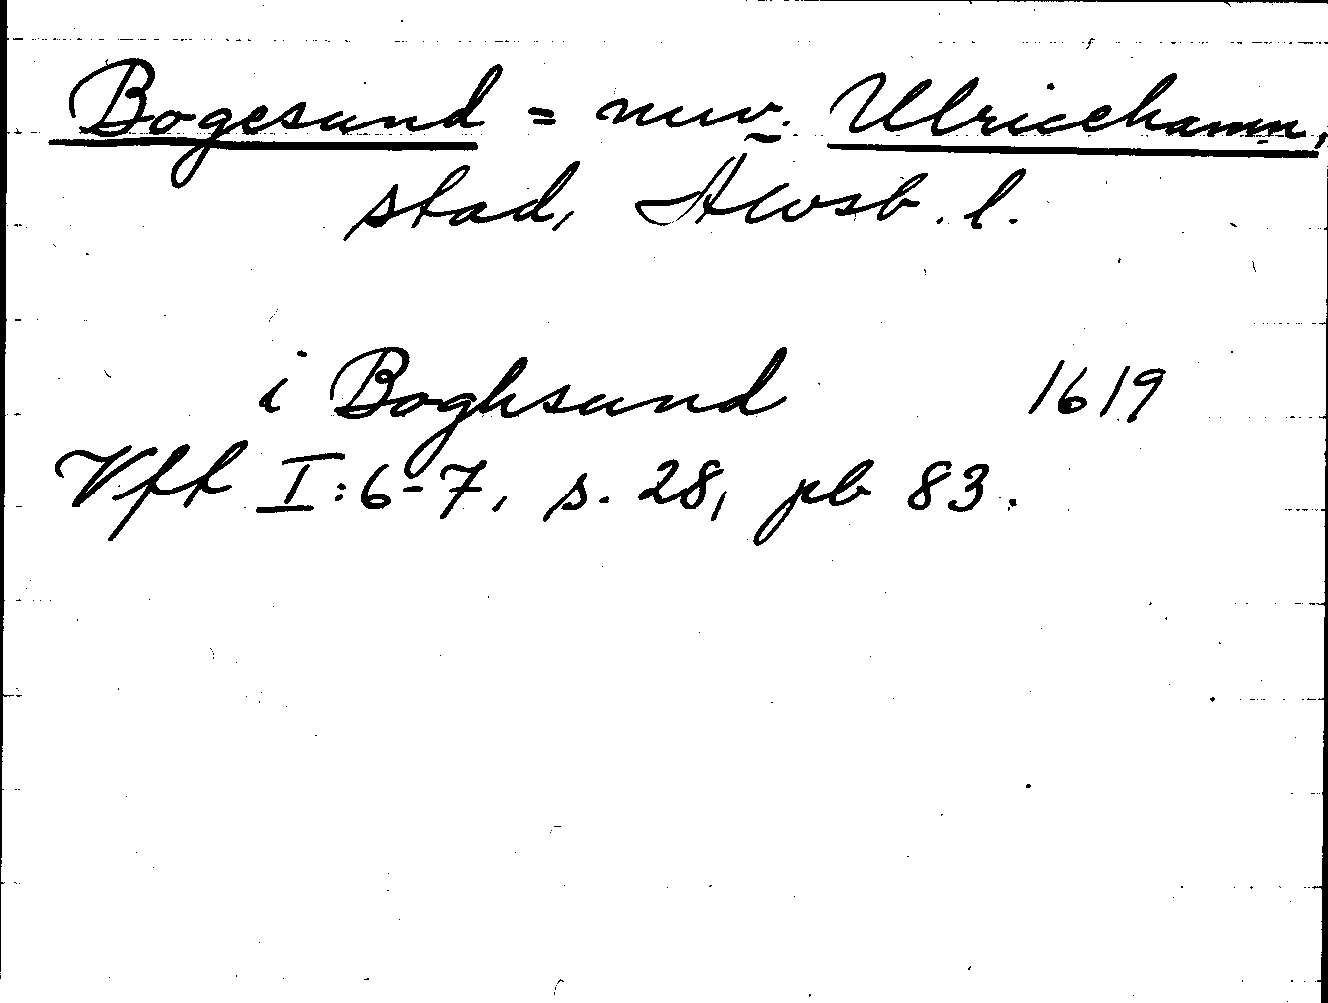 Bogesund = nuv. Ulricehamn,
stad, Älvsb. l.
i Boghsund 1619
Vff I:6-7, s. 28, pb 83.